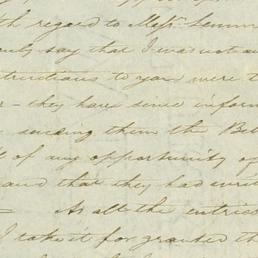 th regard to Messrs. Lemm
only say that I was not au
structions to you were t
— they have since inform
sending them the Bel
of any opportunity of
and that they had writ
— As all the entries
I take it for granted th